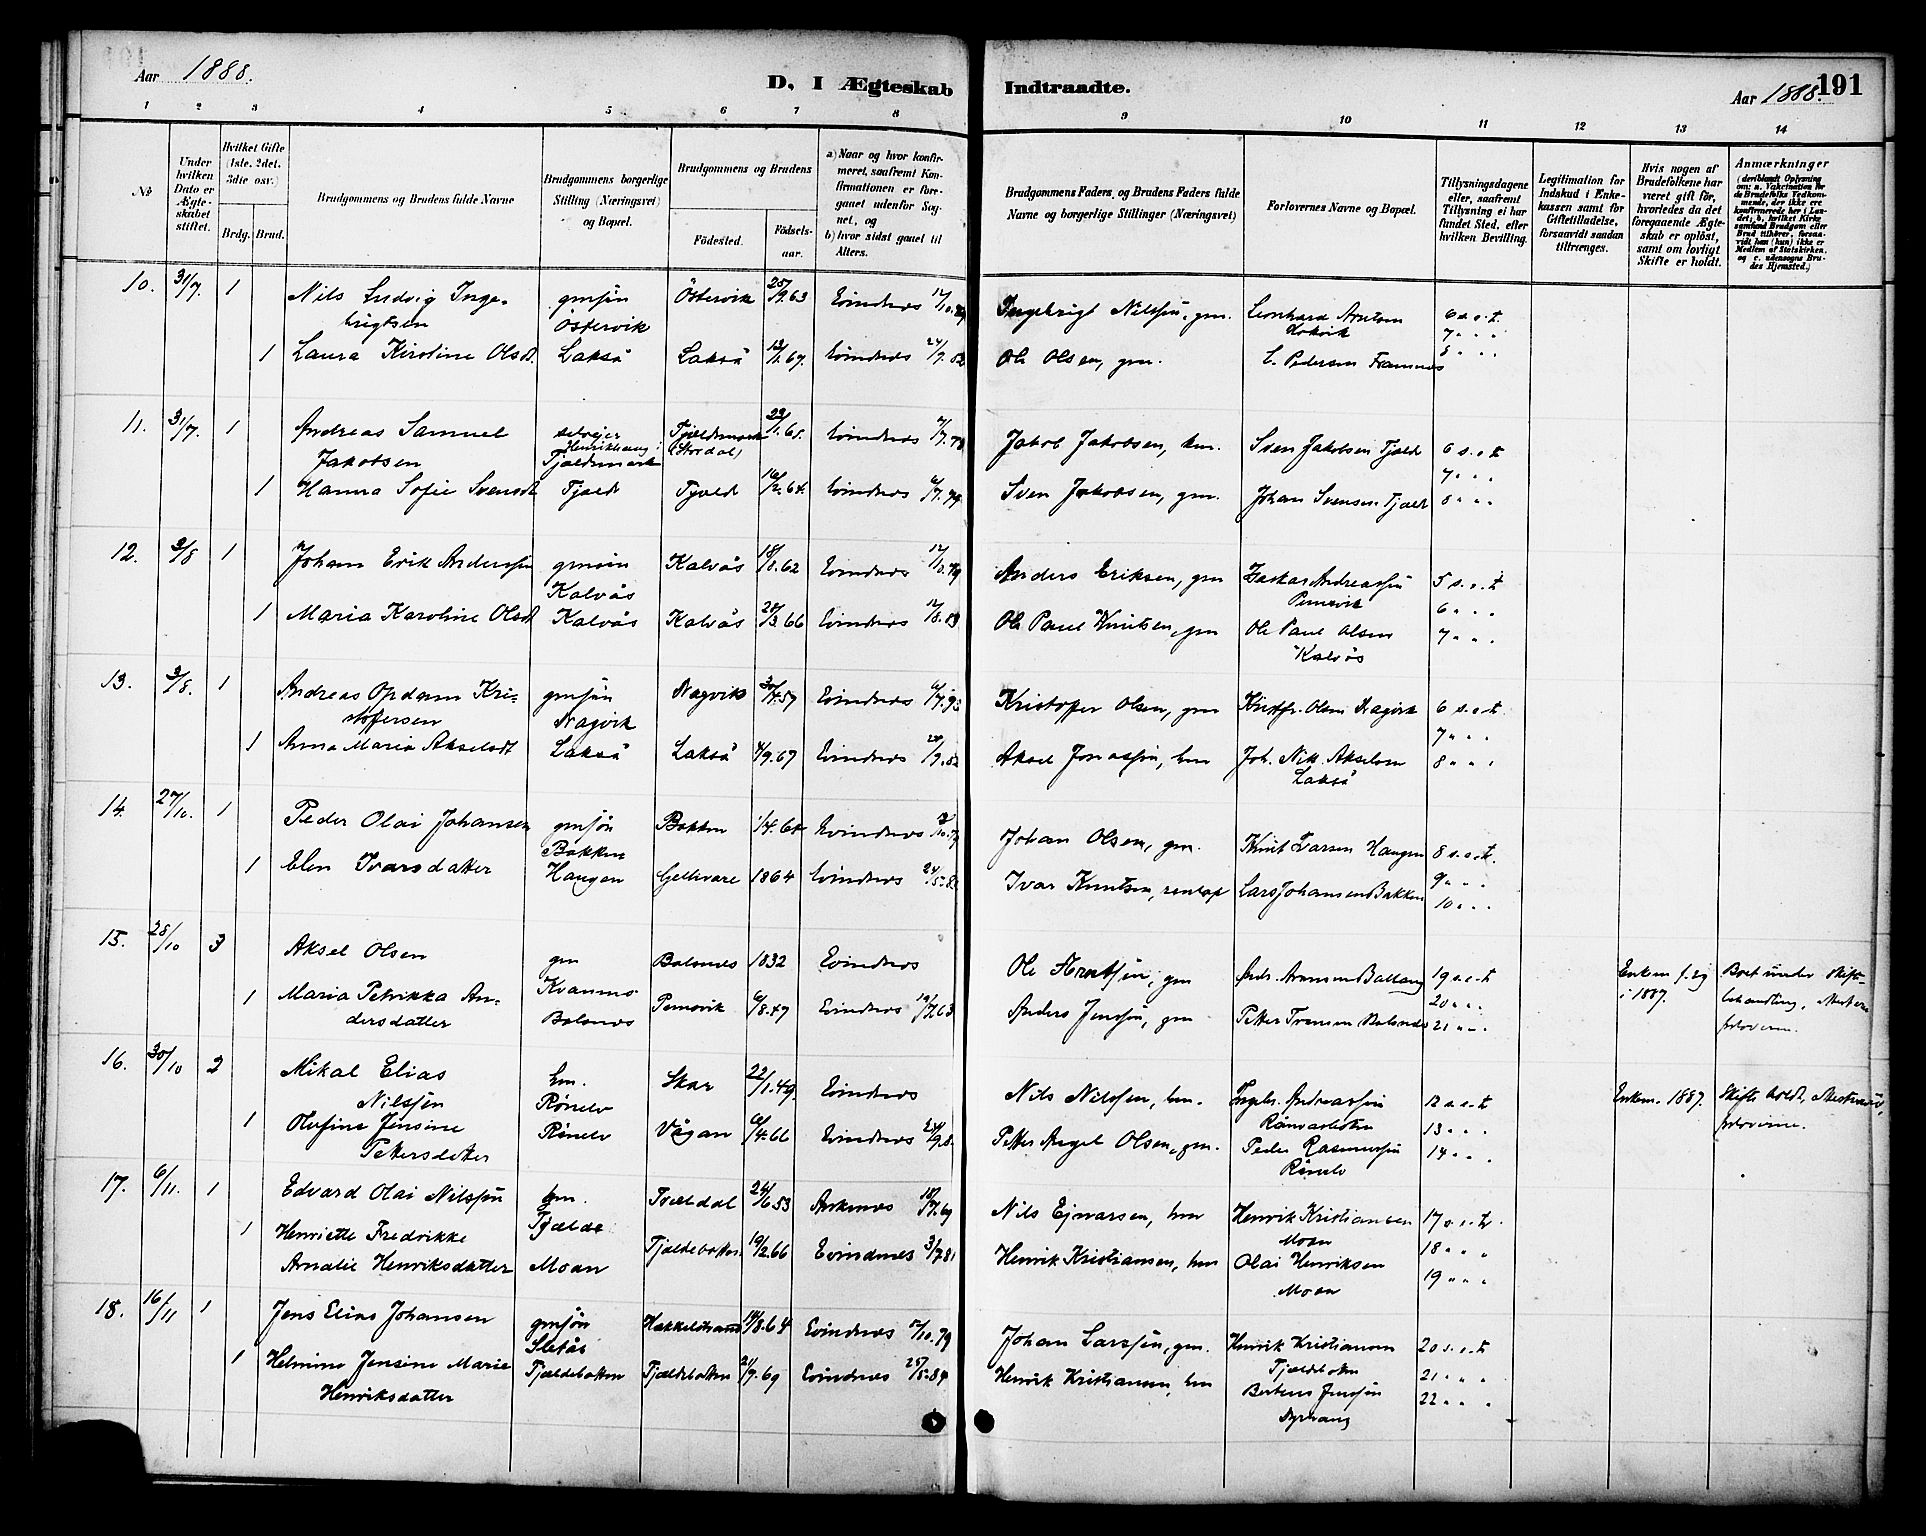 Aar 1888.
D. I Ægteskab Indtraadte.
Aar 1888.
191
1 2 3 4 5 6 7 8 9 10 11 12 13 14
No
Under hvilken Dato er Ægteskabet stiftet.
Hvilket Gifte (1ste, 2det, 3die osv.)
Brdg. Brud.
Brudgommens og Brudens fulde Navne
Brudgommens borgerlige Stilling (Næringsvei) og Bopæl.
Brudgommens og Brudens
Fødested.
Fødselsaar.
a) Naar og hvor konfirmeret, saafremt Konfirmationen er foregaaet udenfor Sognet, og
b) hvor sidst gaaet til Alters.
Brudgommens Faders og Brudens Faders fulde Navne og borgerlige Stillinger (Næringsvei)
Forlovernes Navne og Bopæl.
Tillysningsdagene eller, saafremt Tillysning ei har fundet Sted, efter hvilken Bevilling.
Legitimation for Indskud i Enkekassen samt for Giftetilladelse, forsaavidt saadan tiltrænges.
Hvis nogen af Brudefolkene har været gift før, hvorledes da det foregaaende Ægteskab er opløst, samt om lovligt Skifte er holdt.
Anmærkninger
10. 31/7. 1 Nils Ludvig Ingebrigtsen gmsøn Östervik Östervik 25/9.63 Evindnes Ingebrigt Nilssøn, gm. Leonhard Arntsen 6 s.e.t.
7 " "
1 Laura Kirstine Olsd. Lakså Lakså 13/1.67. Evindnes 24/9.82 Ole Olsen, gm. L. Pedersen Framnes 8 " "
11. 31/7. 1 Andreas Samuel Jakobsen selveier Tjældmark Tjældmark (Stordal) 23/1.65. Evindnes Jakob Jakobsen, hm. Sven Jakobsen Tjæld 6 s.e.t
7 " "
1 Hanna Sofie Svensdt Tjeldt Tjeldt 16/2.64. Evindnes 6/7.79 Sven Jakobsen, gm. Johan Svensen Tjæld 8 " "
12. 3/8 1 Johan Erik Anderssøn gmsøn Kalvås Kalvås 18/8.62 Evindnes 12/10.79 Anders Eriksen, gm Zakar Andreassøn Pemovik 5 s.e.t
6 " "
1 Maria Karoline Olsdt Kalvås Kalvås 28/3.66 Evindnes 12/8.83 Ole Paul Knutsen, gm Ole Paul Olsen Kalvås 7 " "
13. 3/8. 1 Andreas Opdam Kristofersen gmsøn Nagvik Nagvik 30/4.57 Evindnes Kristofer Olsen, gm Kristfr. Olsen Nagvik 6 s.e.t.
7 " "
1 Anna Maria Akselsdt Lakså Lakså 4/9.67 Evindnes 24/9.82 Aksel Jonassøn, hm Joh. Nik. Akselsen Lakså 8 " "
14. 27/10. 1 Peder Olai Johansen gmsøn Bakken Bakken 1/4.64 Evindnes Johan Olsen, gm. Knut Larsen Haugen 8 s.e.t.
9 " "
1 Elen Ivarsdatter Haugen Gellivare 1864 Evindnes Ivar Knutsen, renlap Lars Johansen Bakken 10 " "
15. 28/10 3 Aksel Olsen gm Kvannes Balsnes 1832 Evindnes Ole Arntsøn, gm Andr. Aronsen Ballang 19 s.e.t Enkem. f. sig i 1887. Boet under skiftebehandling, Attest era forloverne.
20 " "
1 Maria Petrikka Andersdatter Balsnes Pemovik 6/8.47 Evindnes 19/7.63 Anders Jenssøn, gm Petter Fransen Balsnes 21 " "
16. 30/10 2 Mikal Elias Nilssøn hm. Rønelv Skar 22/1.49. Evindnes Nils Nilssøn, hm. Ingebr. Andreassøn 12 s.e.t Enkem. 1887. Skifte holdt, forloverne.
13 " "
1 Olufine Jensine Pettersdatter Rønelv Vågan 6/4.66 Evindnes Petter Angel Olsen, gm. Peder Rasmussøn Rønelv 14 " "
17. 6/11. 1 Edvard Olai Nilssøn hm. Tjælde Tvældal 24/6.53 Ankenes 18/7.69 Nils Ejnarsen, hm Henrik Kristiansen Moan 17 s.e.t.
18 " "
1 Henriette Fredrikke Amalie Henriksdatter Moan Tjældebotn 19/2.66 Evindnes 3/7.81 Henrik Kristiansen, hm Olai Henriksen Moan 19 " "
18. 16/11 1 Jens Elias Johansen gmsøn Sletås Hakkelstrand 14/8.64 Evindnes 5/10.79 Johan Larssøn, gm. Henrik Kristiansen Tjældebotn 20 s.e.t
21 " "
1 Helmine Jensine Marie Henriksdatter Tjældebotten Tjældebotten 21/9.69 Evindnes 25/5.84 Henrik Kristiansen, hm Berteus Jenssøn Dyrhaug 22 " "